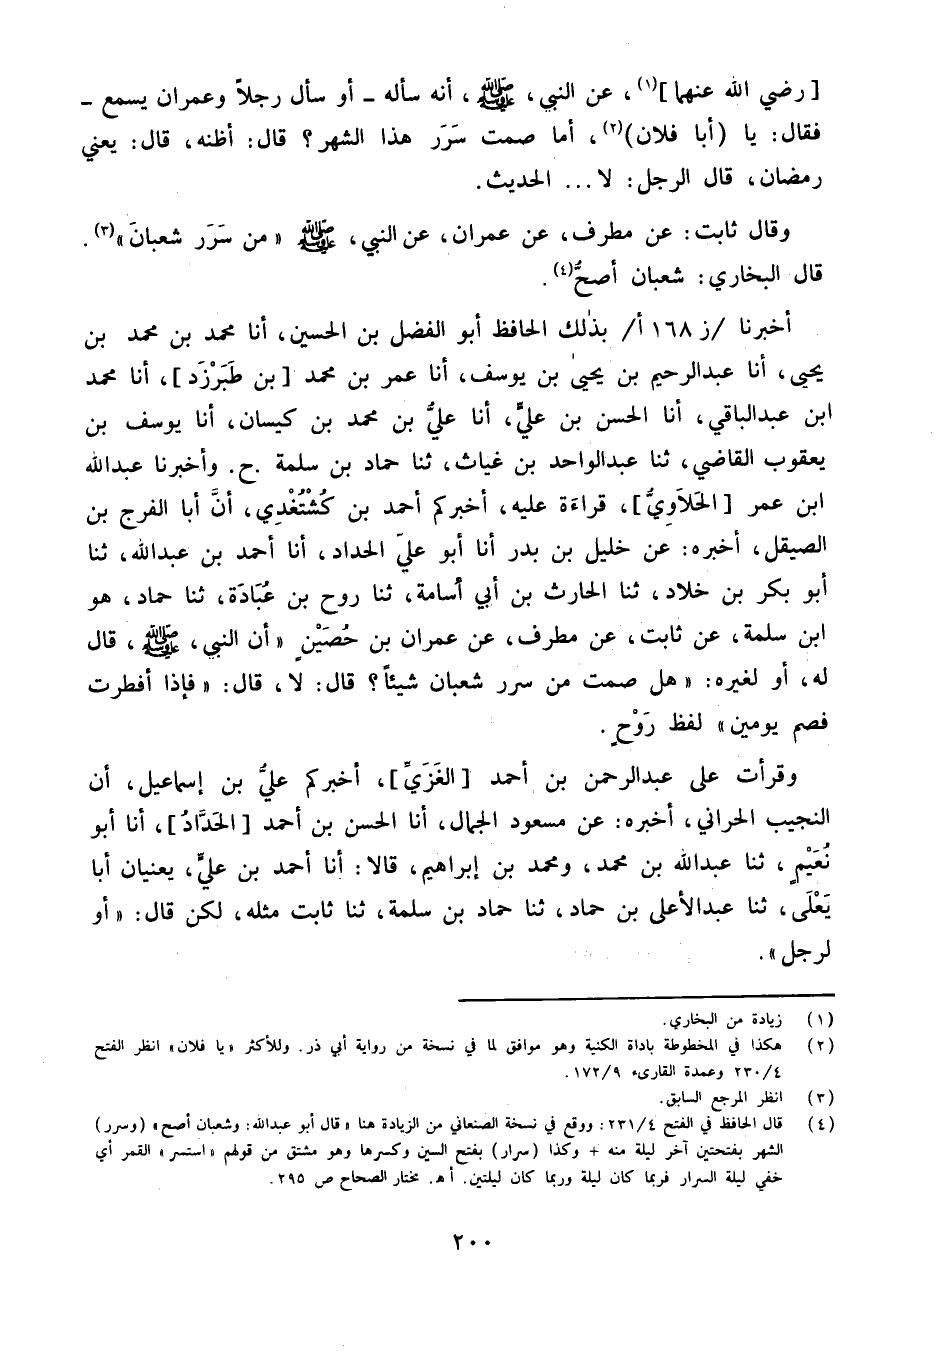 [رضي الله عنهما](١)، عن النبي، ﷺ، أنه سأله ـ أو سأل رجلاً وعمران يسمع ـ
فقال: يا (أبا فلان)(٢)، أما صمت سَرَرَ هذا الشهر؟ قال: أظنه، قال: يعني
رمضان، قال الرجل: لا... الحديث.
وقال ثابت: عن مطرف، عن عمران، عن النبي، ﷺ «من سَرَر شعبانَ»(٣).
قال البخاري: شعبان أصحُّ(٤).
أخبرنا /ز ١٦٨ أ/ بذٰلك الحافظ أبو الفضل بن الحسين، أنا محمد بن محمد بن
يحيى، أنا عبدالرحيم بن يحيىٰ بن يوسف، أنا عمر بن محمد [بن طَبَرْزَد]، أنا محمد
ابن عبدالباقي، أنا الحسن بن عليٍّ، أنا عليُّ بن محمد بن كيسان، أنا يوسف بن
يعقوب القاضي، ثنا عبدالواحد بن غياث، ثنا حماد بن سلمة .ح. وأخبرنا عبدالله
ابن عمر [الحَلَاوِيُّ]، قراءة عليه، أخبركم أحمد بن كُشْتُغْدِي، أنَّ أبا الفرج بن
الصيقل، أخبره: عن خليل بن بدر أنا أبو عليّ الحداد، أنا أحمد بن عبدالله، ثنا
أبو بكر بن خلاد، ثنا الحارث بن أبي أسامة، ثنا روح بن عُبَادَة، ثنا حماد، هو
ابن سلمة، عن ثابت، عن مطرف، عن عمران بن حُصَيْنٍ «أن النبي، ﷺ، قال
له، أو لغيره: «هل صمت من سرر شعبان شيئاً؟ قال: لا، قال: «فإذا أفطرت
فصم يومين» لفظ رَوْحٍ.
وقرأت على عبدالرحمن بن أحمد [الغَزِّيِّ]، أخبركم عليُّ بن إسماعيل، أن
النجيب الحراني، أخبره: عن مسعود الجمال، أنا الحسن بن أحمد [الحَدَّادُ]، أنا أبو
نُعَيْمٍ، ثنا عبدالله بن محمد، ومحمد بن إبراهيم، قالا: أنا أحمد بن عليٍّ، يعنيان أبا
يَعْلَى، ثنا عبدالأعلى بن حماد، ثنا حماد بن سلمة، ثنا ثابت مثله، لكن قال: «أو
لرجل».
(١) زيادة من البخاري.
(٢) هكذا في المخطوطة باداة الكنية وهو موافق لما في نسخة من رواية أبي ذر. وللأكثر «يا فلان» انظر الفتح
٢٣٠/٤ وعمدة القارىء ١٧٢/٩.
(٣) انظر المرجع السابق.
(٤) قال الحافظ في الفتح ٢٣١/٤: ووقع في نسخة الصنعاني من الزيادة هنا «قال أبو عبدالله: وشعبان أصح» (وسرر)
الشهر بفتحتين آخر ليلة منه + وكذا (سرار) بفتح السين وكسرها وهو مشتق من قولهم «استسر» القمر أي
خفي ليلة السرار فربما كان ليلة وربما كان ليلتين. أ هـ. مختار الصحاح ص ٢٩٥.
٢٠٠